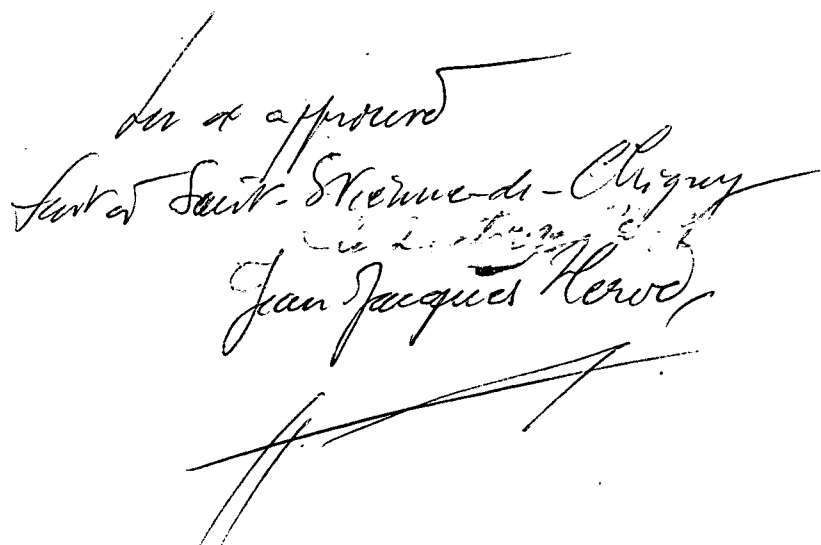 Lu et approuvé
Fait à Saint-Etienne-de-Chigny
Le 2
Jean Jacques Hervé